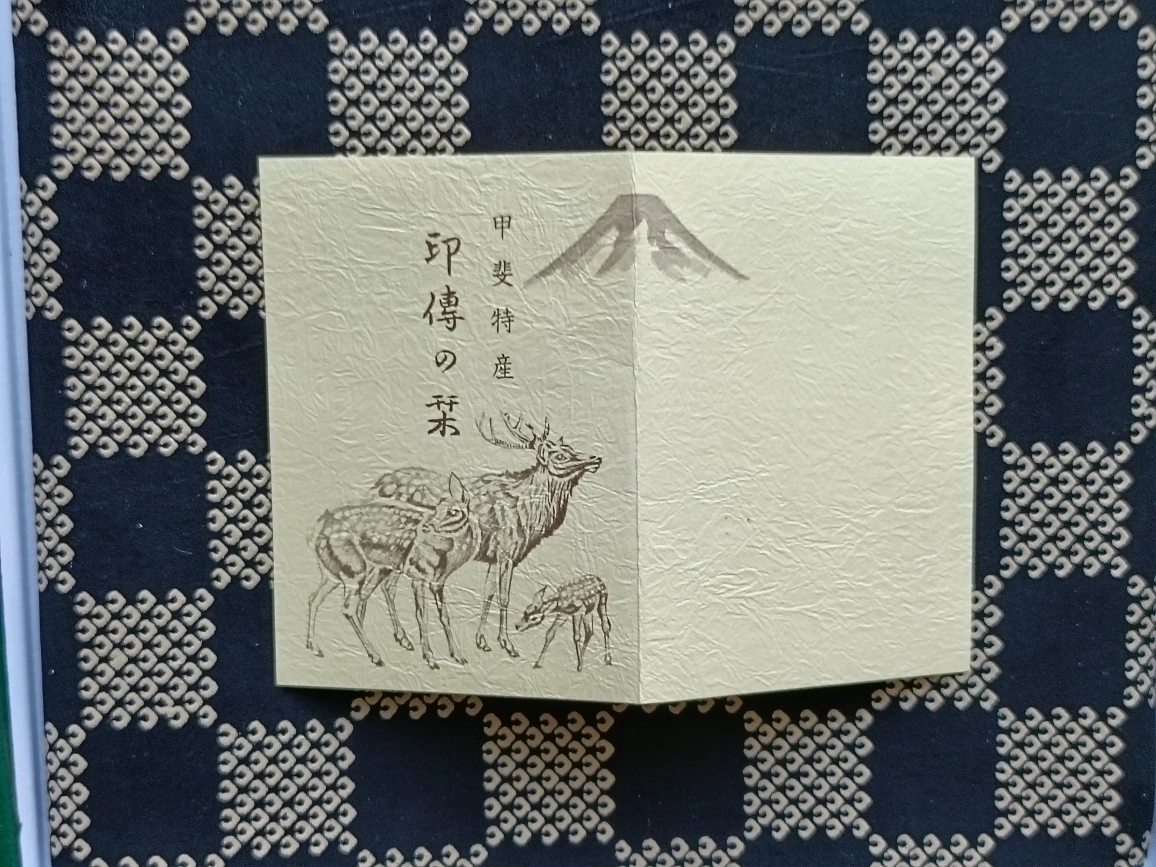 甲斐特産
印傳の栞